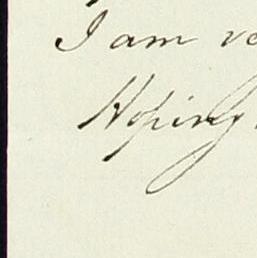 I am ve
Hoping